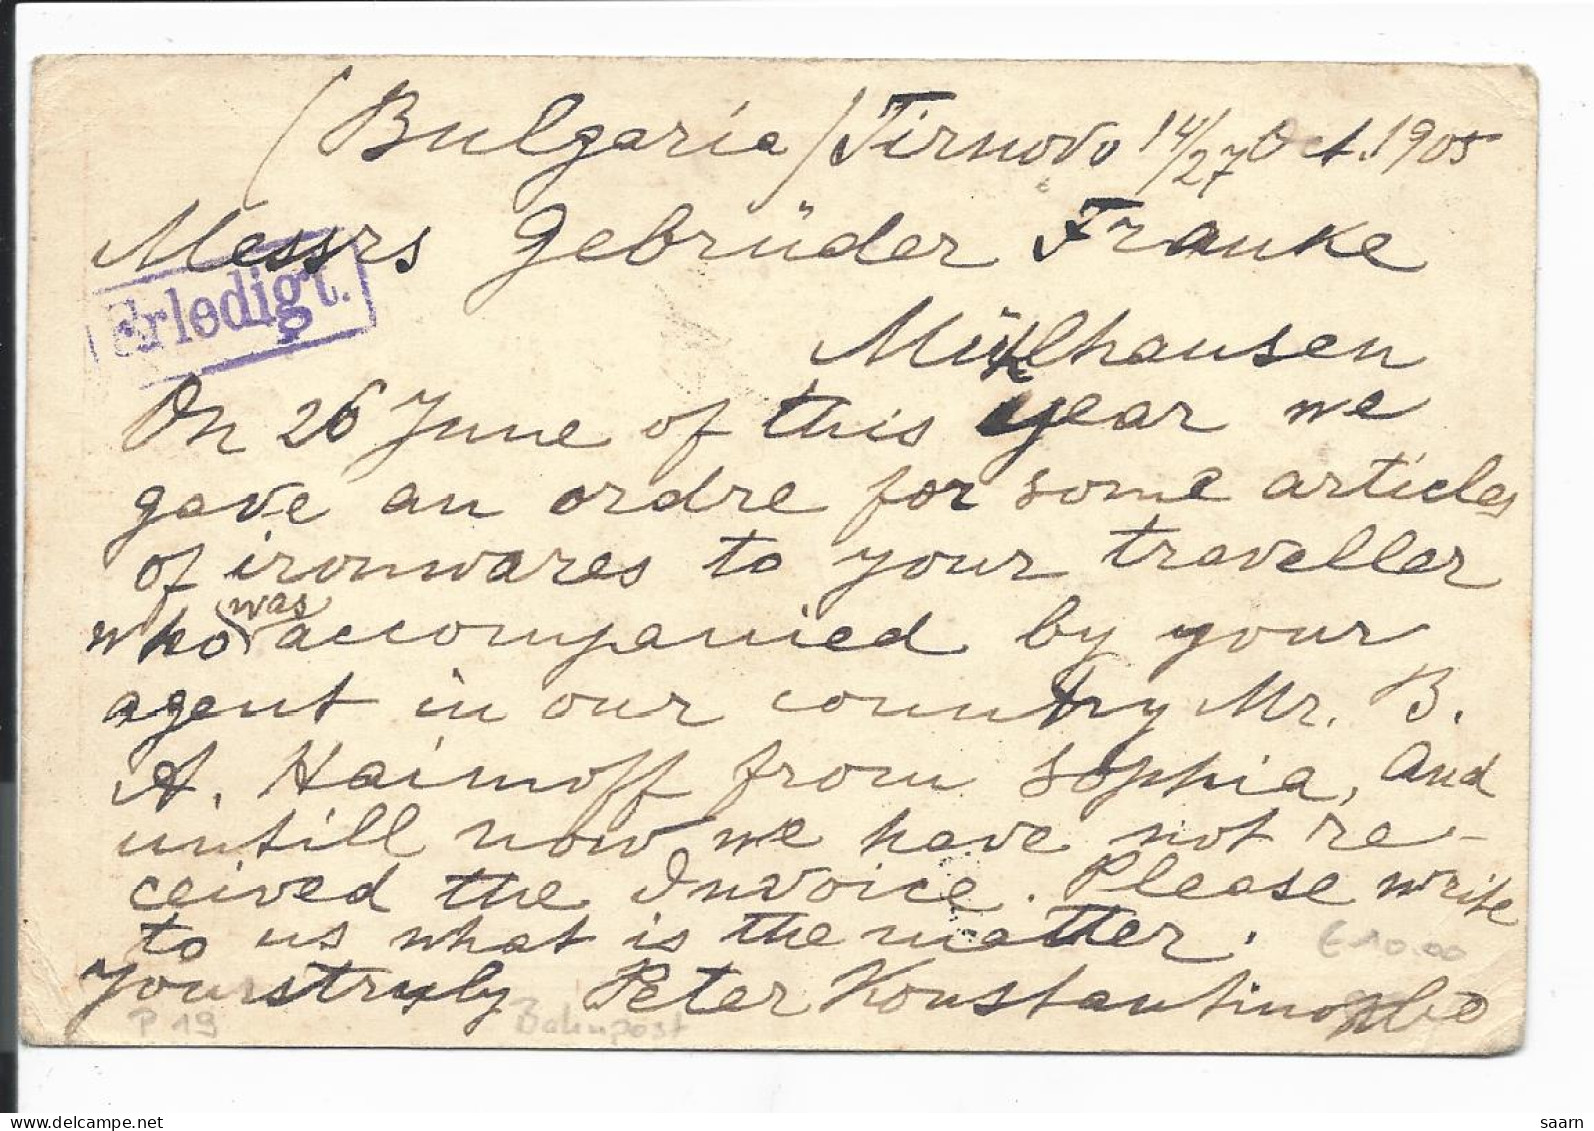 (Bulgaria) Tirnovo 14/27 Oct. 1905
Messrs Gebrüder Franke
Erledigt.
Mühlhausen
On 26 June of this year we
gave an ordre for some articles
of ironwares to your traveller
was
who accompanied by your
agent in our country Mr. B.
A. Haimoff from Sophia, and
untill now we have not re-
ceived the Invoice. Please write
to us what is the matter.
€ 10.00
Yours truly Peter
P 19 Bahnpost
saarn